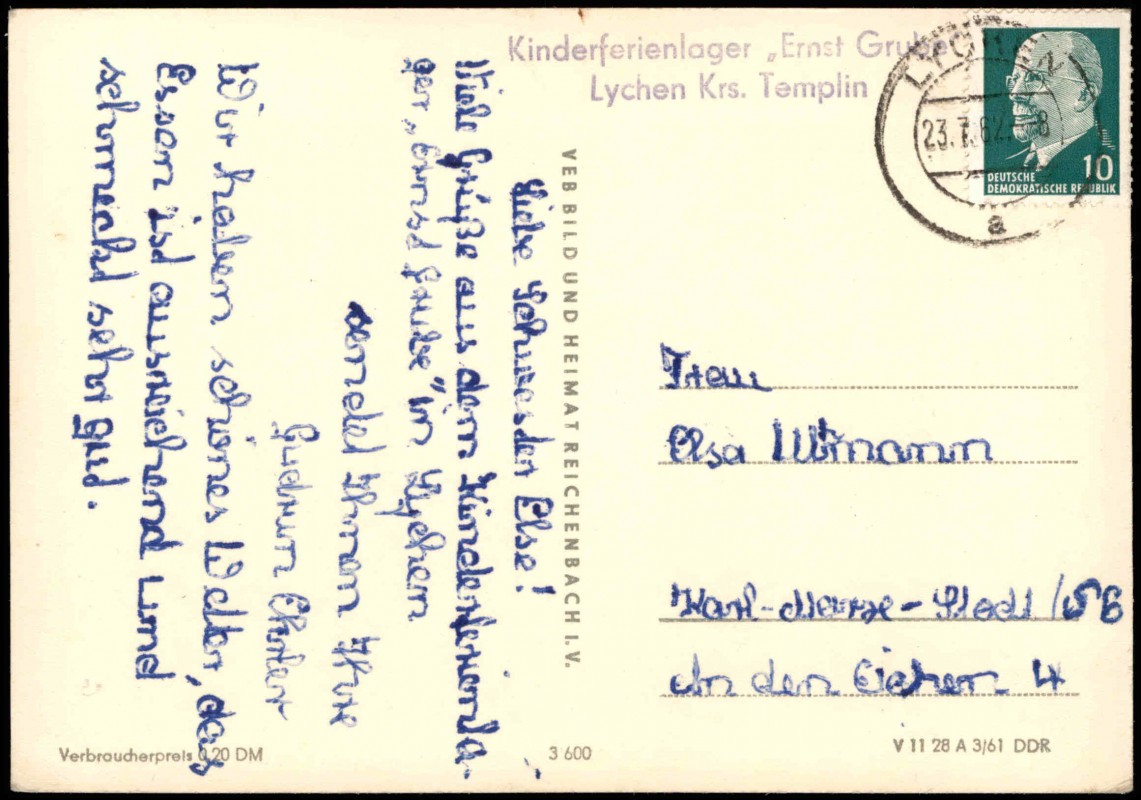 Kinderferienlager „Ernst Grube"
Lychen Krs. Templin
LYCHEN 2
23.7.62.-8
a
10
DEUTSCHE
DEMOKRATISCHE REPUBLIK
Liebe Schwester Else!
Viele Grüße aus dem Kinderferienla-
ger „Ernst Grube" in Lychen
sendet Ihnen Ihre
Gudrun
Wir haben schönes Wetter, das
Essen ist ausreichend und
schmeckt sehr gut.
VEB BILD UND HEIMAT REICHENBACH I.V.
Frau
Elsa Ullmann
Karl-Marx-Stadt/S 6
An den Eichen 4
Verbraucherpreis 0,20 DM
3 600
V 11 28 A 3/61 DDR